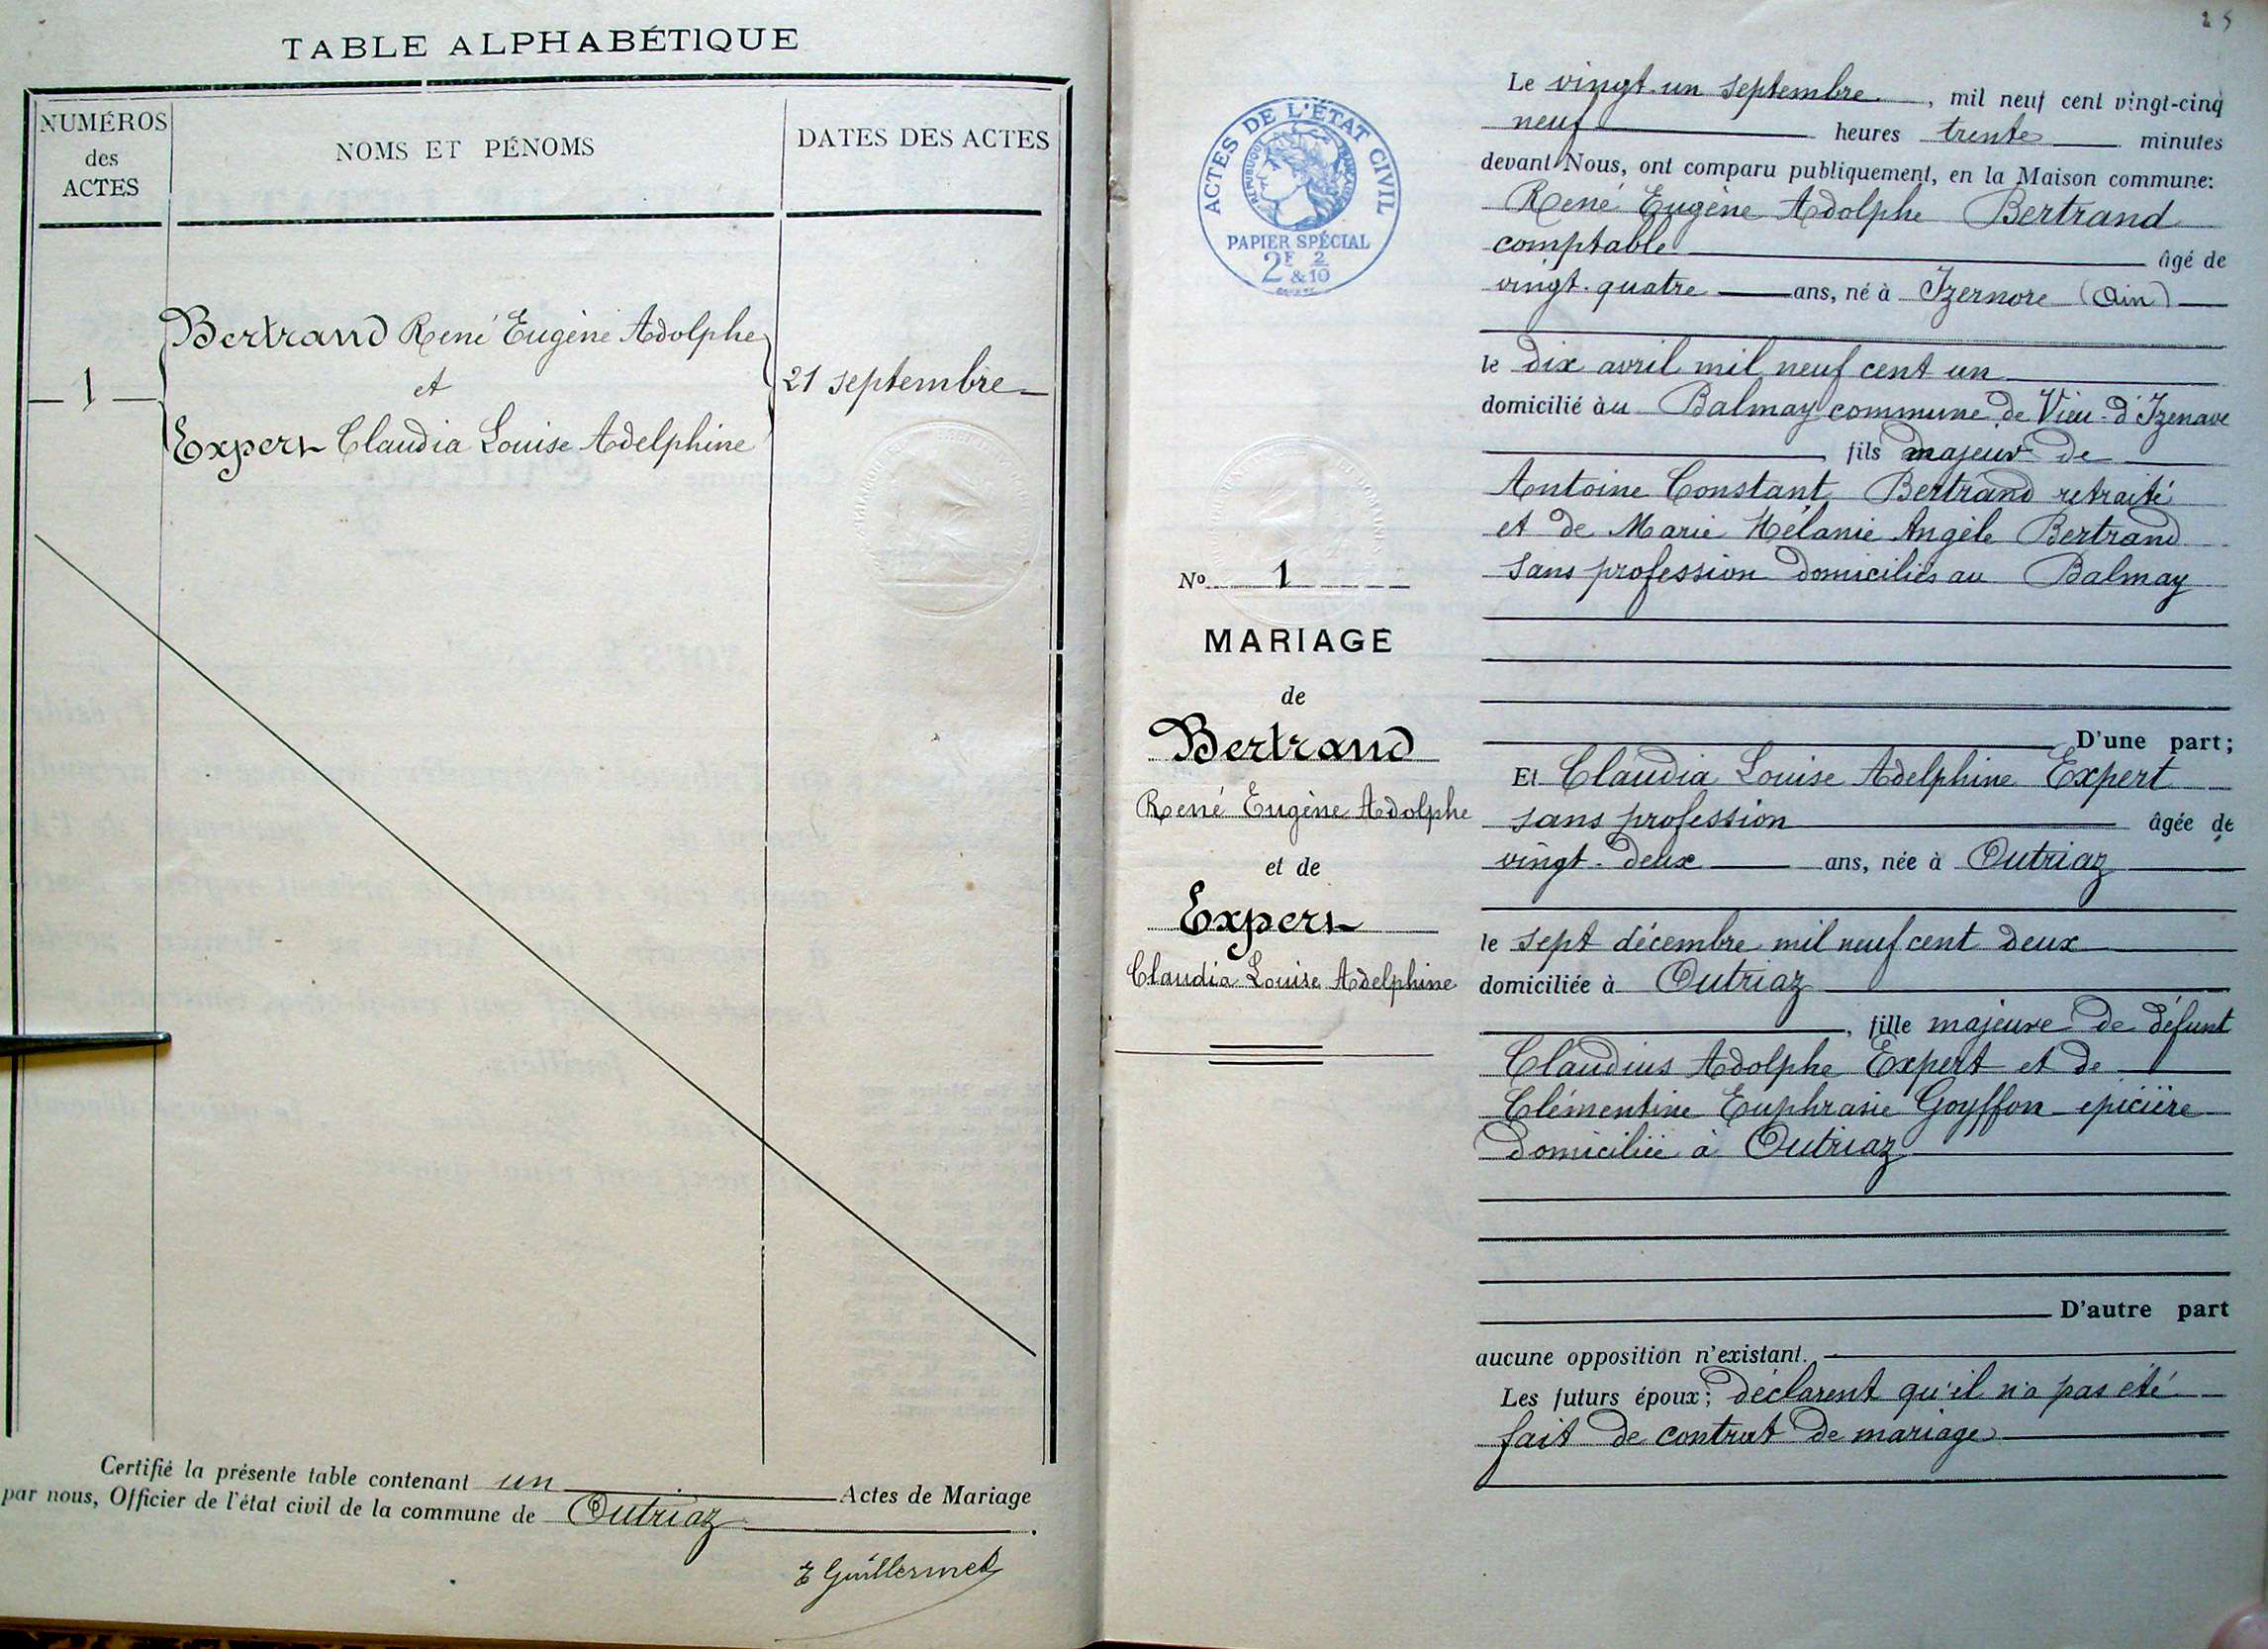 TABLE ALPHABÉTIQUE
NUMÉROS
des
ACTES
NOMS ET PÉNOMS
DATES DES ACTES
1
Bertrand René Eugène Adolphe
et
Expert Claudia Louise Adelphine
21 septembre
Certifié la présente table contenant un Actes de Mariage
par nous, Officier de l'état civil de la commune de Outriaz.
E Guillermet
25
ACTES DE L'ÉTAT CIVIL
RÉPUBLIQUE FRANÇAISE
PAPIER SPÉCIAL
2F 2
&10
N° 1
MARIAGE
de
Bertrand
René Eugène Adolphe
et de
Expert
Claudia Louise Adelphine
Le vingt-un septembre, mil neuf cent vingt-cinq
neuf heures trente minutes
devant Nous, ont comparu publiquement, en la Maison commune:
René Eugène Adolphe Bertrand
comptable âgé de
vingt-quatre ans, né à Izernore (Ain)
le dix avril mil neuf cent un
domicilié àu Balmay commune de Vieu-d'Izenave
, fils majeur de
Antoine Constant Bertrand retraité
et de Marie Mélanie Angèle Bertrand
sans profession domiciliés au Balmay
D'une part;
Et Claudia Louise Adelphine Expert
sans profession âgée de
vingt-deux ans, née à Outriaz
le sept décembre mil neuf cent deux
domiciliée à Outriaz
, fille majeure de défunt
Claudius Adolphe Expert et de
Clémentine Euphrasie Goyffon épicière
domiciliée à Outriaz
D'autre part
aucune opposition n'existant.
Les futurs époux; déclarent qu'il n'a pas été
fait de contrat de mariage